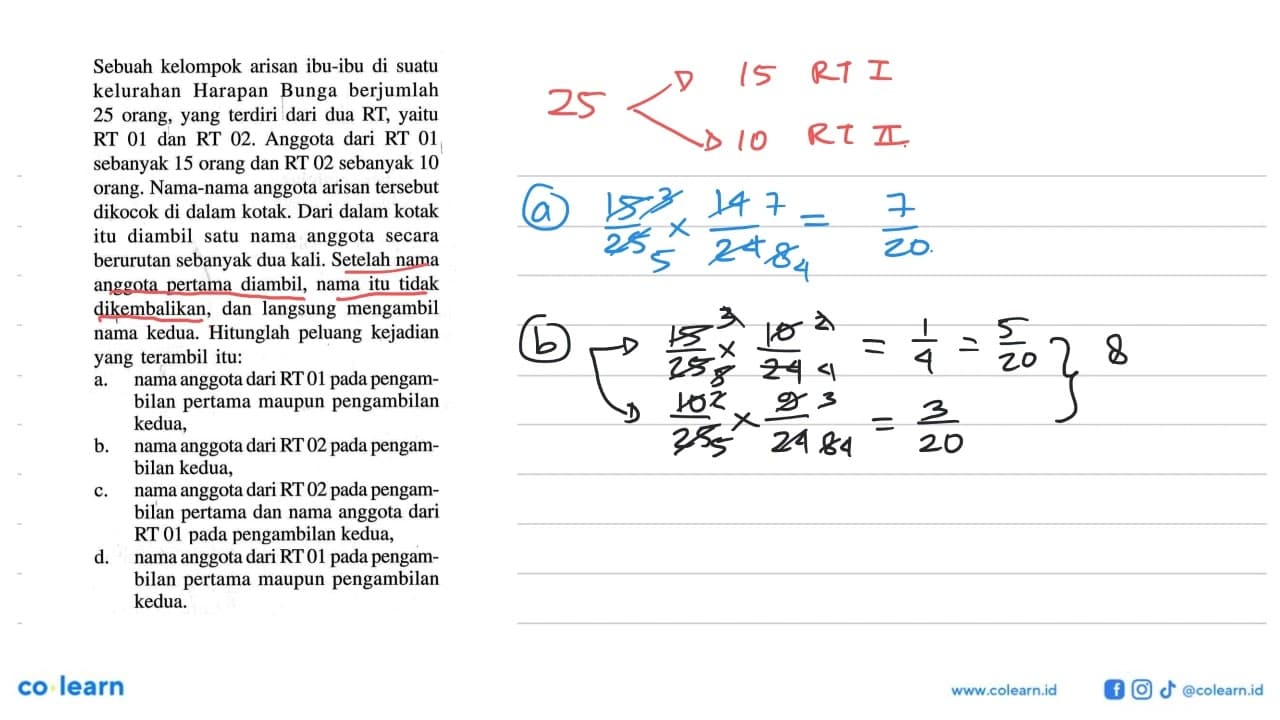 Sebuah kelompok arisan ibu-ibu di suatu
kelurahan Harapan Bunga berjumlah
25 orang, yang terdiri dari dua RT, yaitu
RT 01 dan RT 02. Anggota dari RT 01
sebanyak 15 orang dan RT 02 sebanyak 10
orang. Nama-nama anggota arisan tersebut
dikocok di dalam kotak. Dari dalam kotak
itu diambil satu nama anggota secara
berurutan sebanyak dua kali. Setelah nama
anggota pertama diambil, nama itu tidak
dikembalikan, dan langsung mengambil
nama kedua. Hitunglah peluang kejadian
yang terambil itu:
a. nama anggota dari RT 01 pada pengam-
bilan pertama maupun pengambilan
kedua,
b. nama anggota dari RT 02 pada pengam-
bilan kedua,
c. nama anggota dari RT 02 pada pengam-
bilan pertama dan nama anggota dari
RT 01 pada pengambilan kedua,
d. nama anggota dari RT 01 pada pengam-
bilan pertama maupun pengambilan
kedua.
25
15 RT I
10 RT II
a 15 3 / 25 5 × 14 7 / 24 8 4 = 7 / 20
b 15 3 / 25 8 × 10 2 / 24 4 = 1 / 4 = 5 / 20 } 8
10 2 / 25 5 × 9 3 / 24 8 4 = 3 / 20
co learn
www.colearn.id
@colearn.id